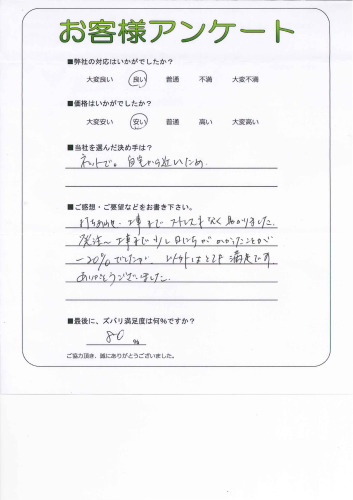 お客様アンケート
■弊社の対応はいかがでしたか？
大変良い 良い 普通 不満 大変不満
■価格はいかがでしたか？
大変安い 安い 普通 高い 大変高い
■当社を選んだ決め手は？
ネットで。自宅から近いため
■ご感想・ご要望などをお書き下さい。
打ち合わせ、工事まで ストレスなく 助かりました。
発注〜工事まで 少し日にちが かかったことが
-20%でしたが、以外はとても満足です
ありがとうございました。
■最後に、ズバリ満足度は何％ですか？
80 ％
ご協力頂き、誠にありがとうございました。